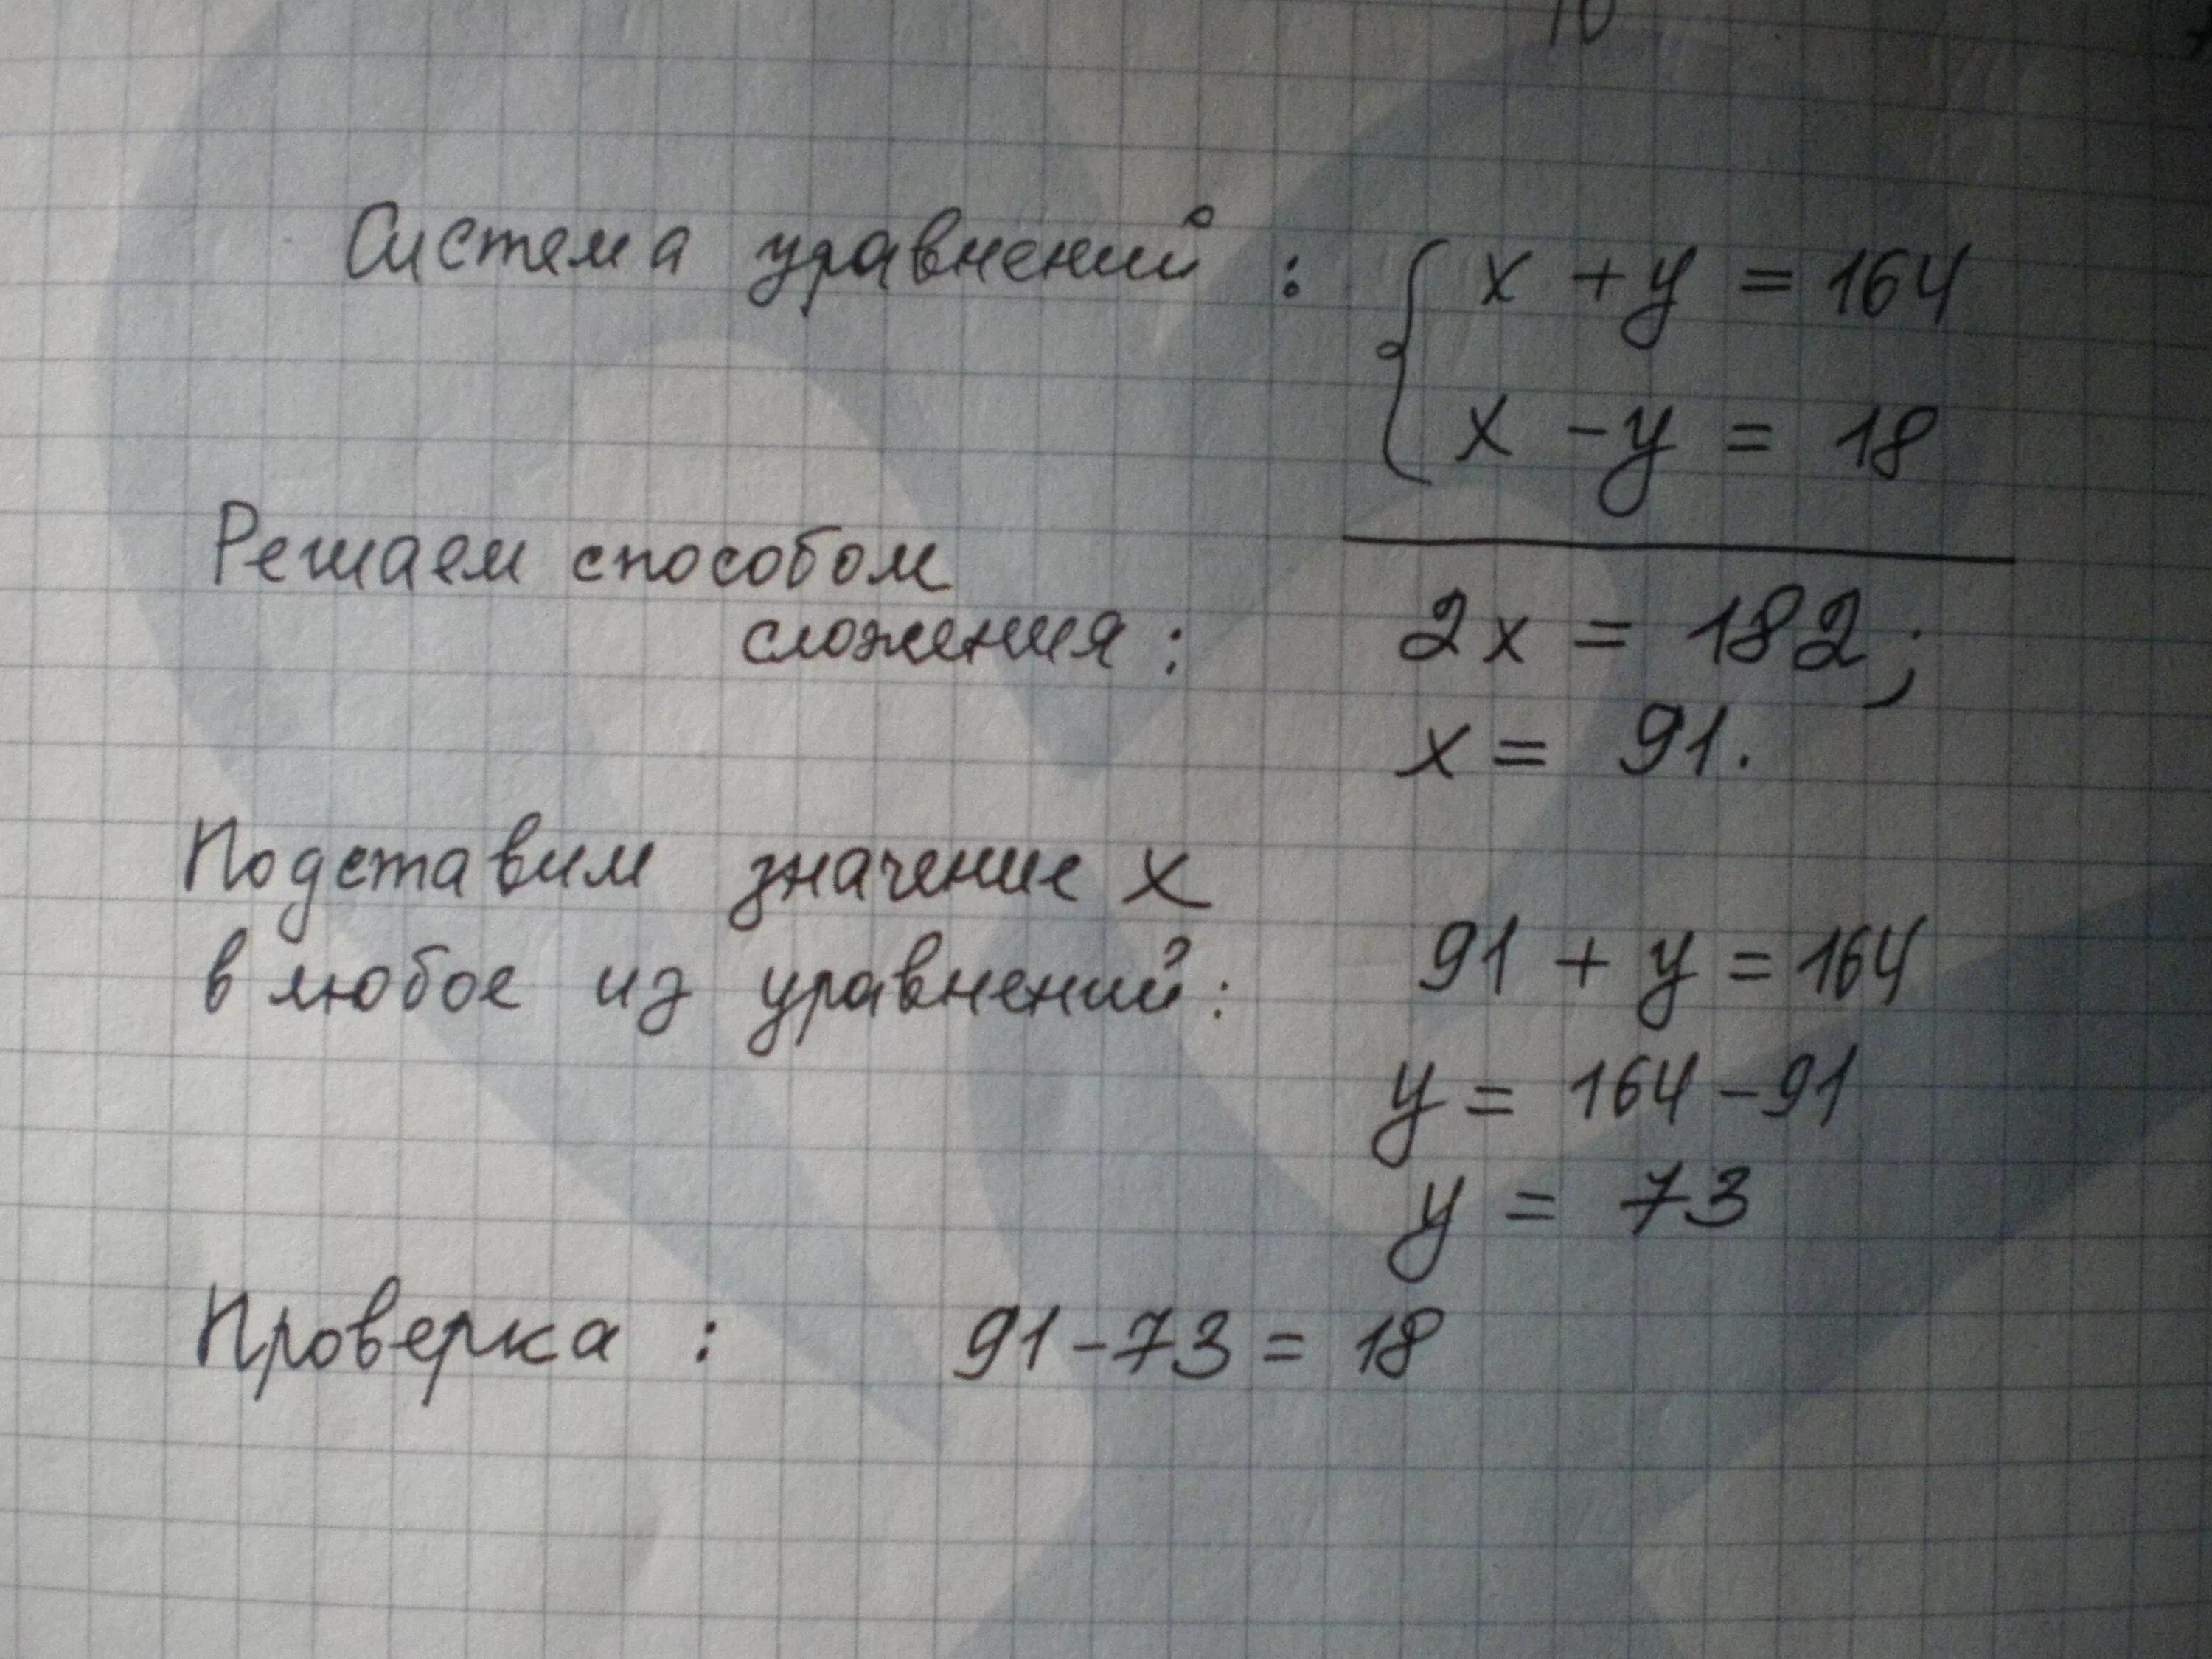 Система уравнений : { x + y = 164
x - y = 18
Решаем способом
сложения : 2x = 182;
x = 91.
Подставим значение x
в любое из уравнений: 91 + y = 164
y = 164 - 91
y = 73
Проверка : 91 - 73 = 18